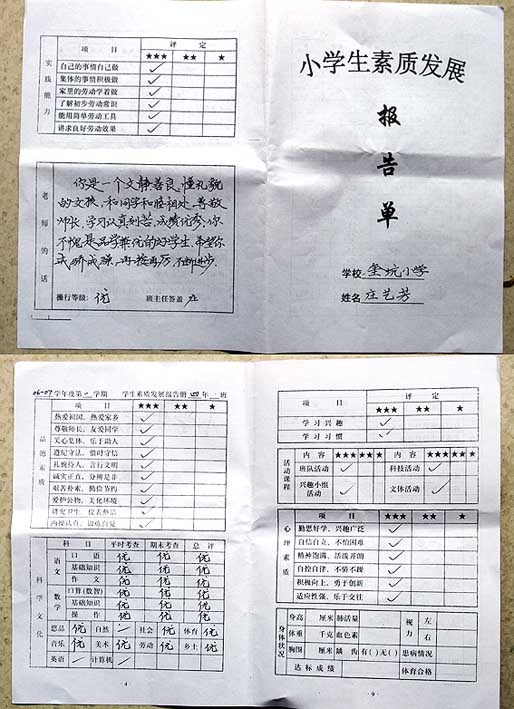 项 目 评 定
★★★ ★★ ★
实践能力
自己的事情自己做 ✓
集体的事情积极做 ✓
家里的劳动学着做 ✓
了解初步劳动常识 ✓
能用简单劳动工具 ✓
讲求良好劳动效果 ✓
老师的话
你是一个文静善良、懂礼貌
的女孩，和同学和睦相处，尊敬
师长，学习认真刻苦，成绩优秀，你
不愧是品学兼优的好学生，希望你
戒骄戒躁，再接再厉，不断进步。
操行等级：优 班主任签盖 庄
小学生素质发展
报告单
学校：坑小学
姓名 庄艺芳
06-07学年度第一学期 学生素质发展报告册 四年 班
项 目 ★★★ ★★ ★
品德素质
热爱祖国、热爱家乡 ✓
尊敬师长、友爱同学 ✓
关心集体、乐于助人 ✓
遵纪守法、惜时守信 ✓
礼貌待人、言行文明 ✓
诚实正直、分辨是非 ✓
艰苦朴素、勤俭节约 ✓
爱护公物、美化环境 ✓
讲究卫生、仪表整洁 ✓
内操认真、锻炼自觉 ✓
科学文化
科 目 平时考查 期末考查 总 评
语文 口 语 优 优 优
基础知识 优 优 优
作 文 优 优 优
数学 口算(数智) 优 优 优
基础知识 优 优 优
操 作 优 优 优
思品 优 自然 社会 优 体育 优
音乐 优 美术 优 劳动 优 乡土 优
英语 计算机
· 4 ·
项 目 评 定
★★★ ★★ ★
学 习 兴 趣 ✓
学 习 习 惯 ✓
活动课程
内 容 ★★★ ★★ ★ 内 容 ★★★ ★★ ★
班队活动 ✓ 科技活动 ✓
兴趣小组活动 ✓ 文体活动 ✓
心理素质
项 目 ★★★ ★★ ★
勤思好学、兴趣广泛 ✓
自信自立、不怕困难 ✓
精神饱满、活泼开朗 ✓
自控自律、不骄不躁 ✓
积极向上、勇于创新 ✓
适应性强、乐于交往 ✓
身体状况
身高 厘米 肺活量 视力 左
体重 千克 血色素 右
胸围 厘米 龋 齿 有( )无( ) 患病情况
达 标 成 绩 体育合格
· 9 ·